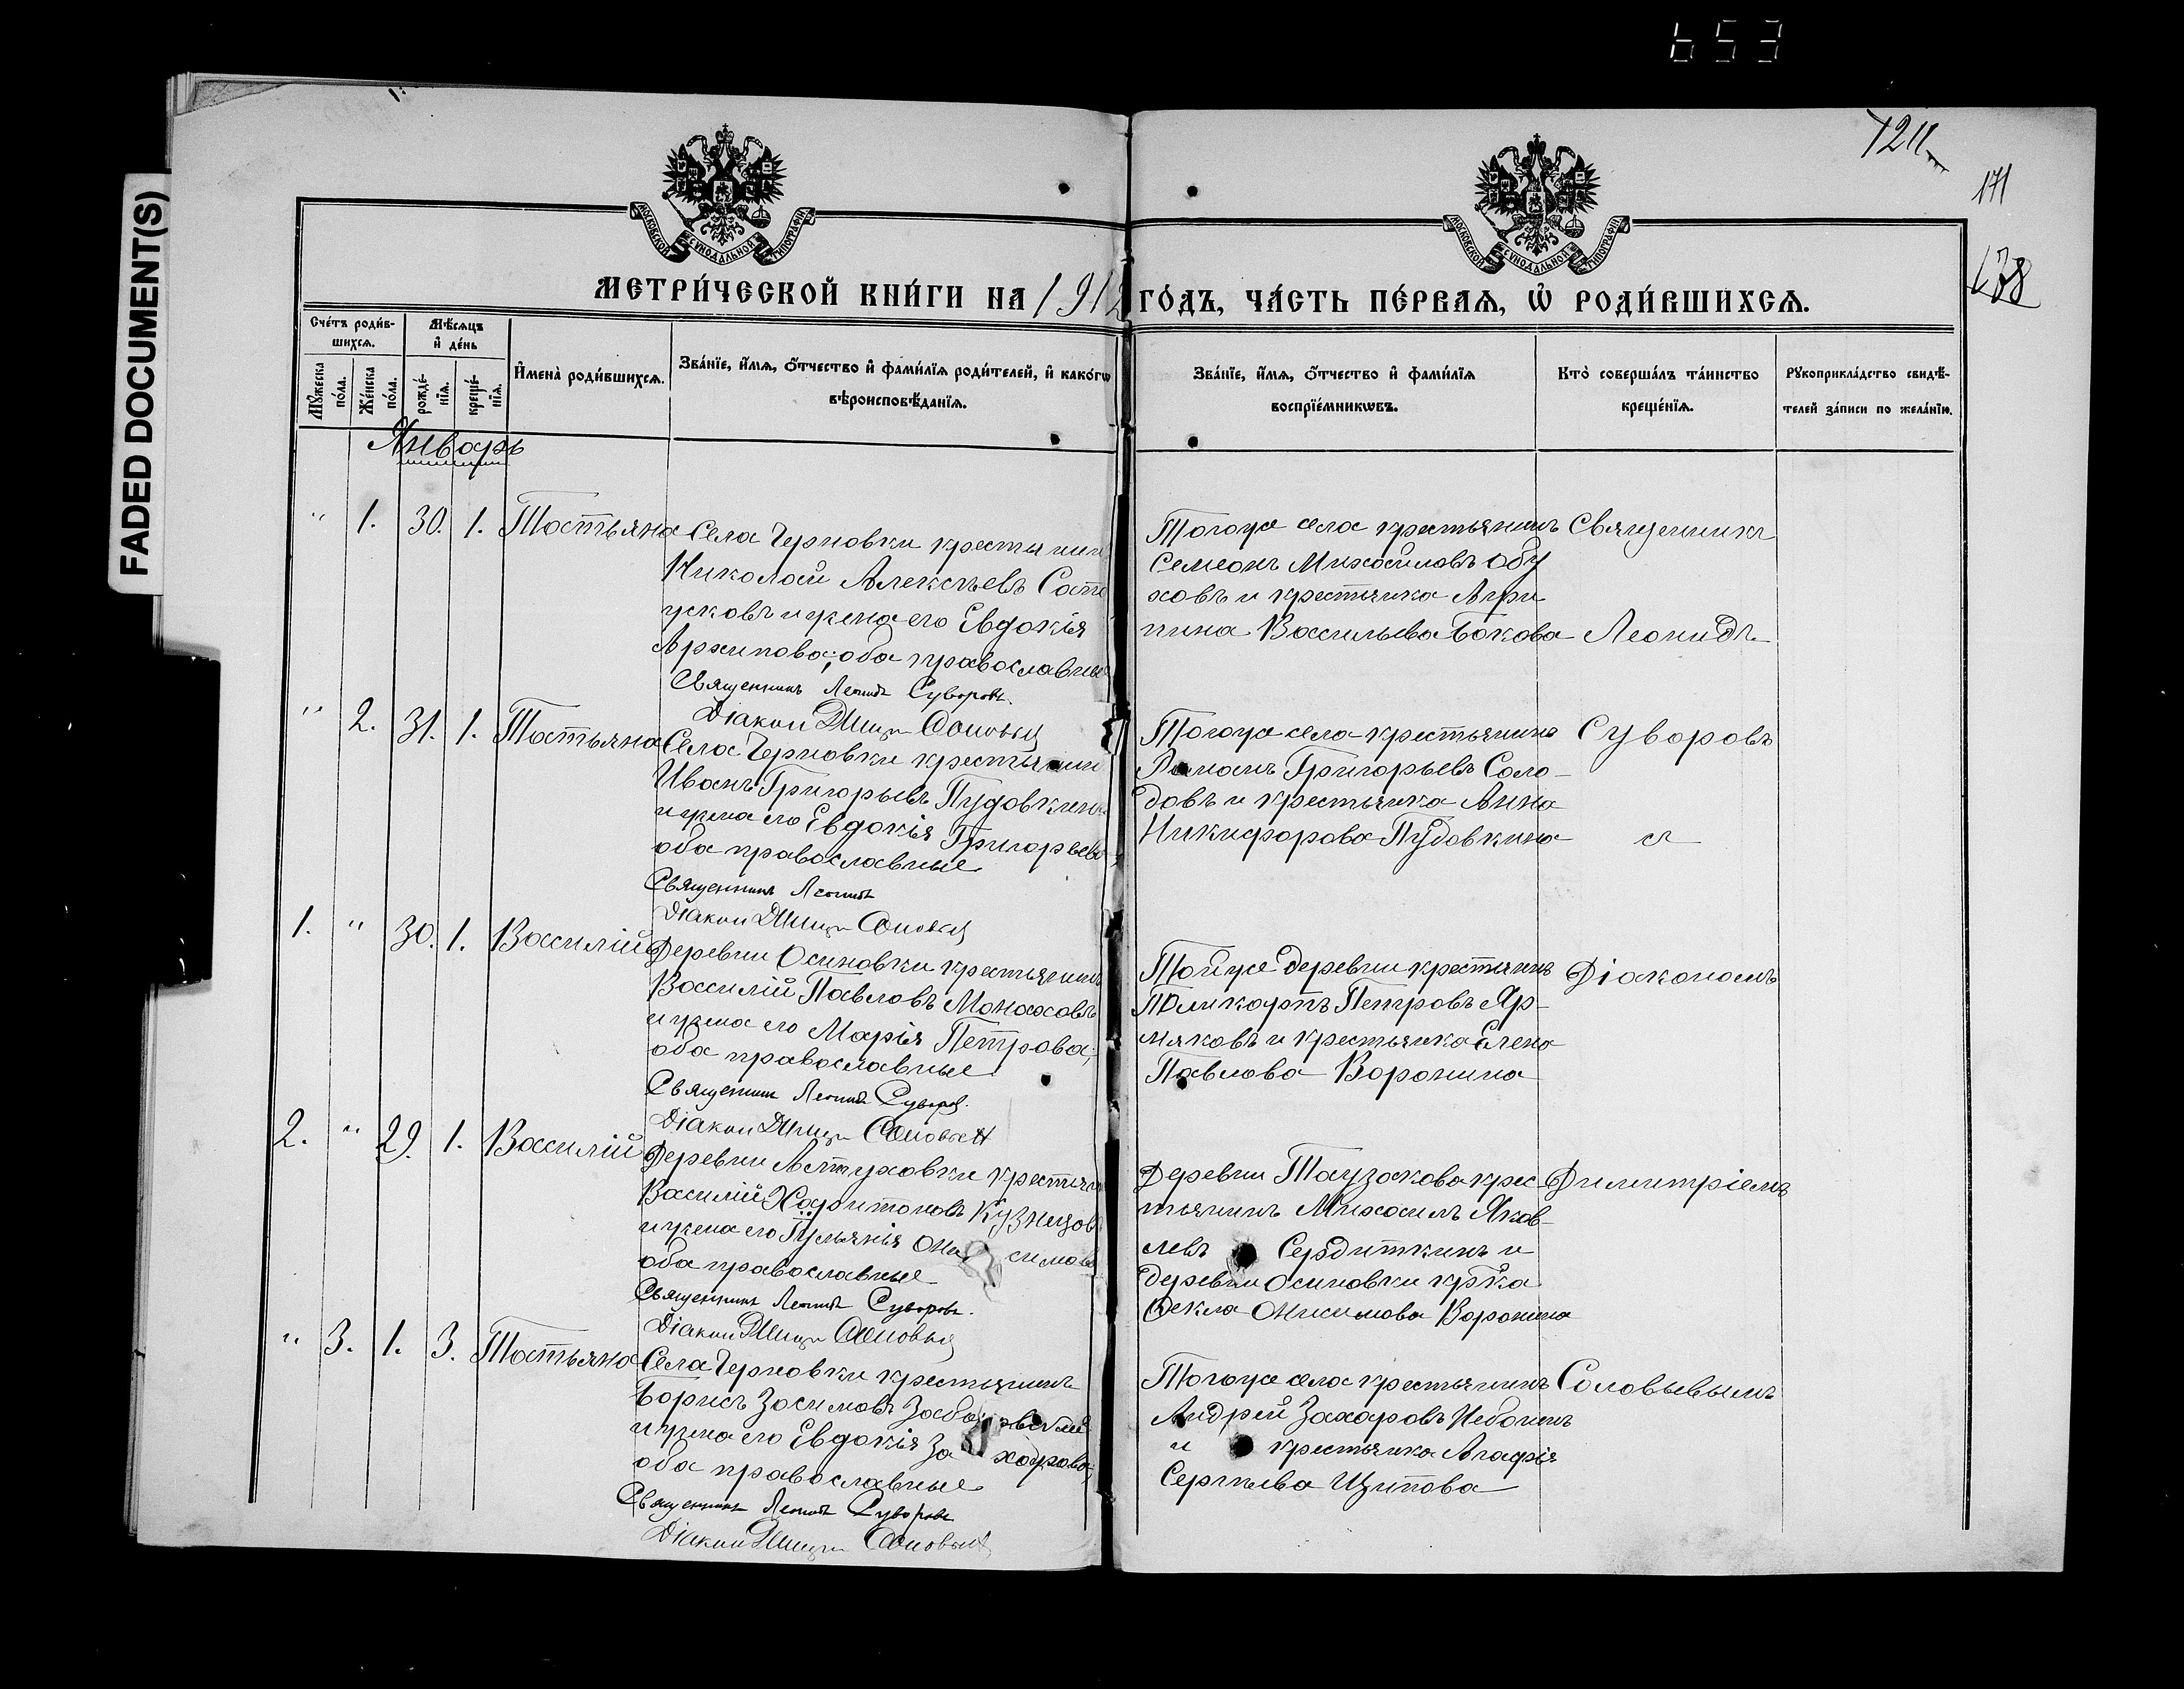 653
FADED DOCUMENT(S)
1211
171
138
МОСКОВСКОЙ СѴНОДАЛЬНОЙ ТИПОГРАФІИ
МОСКОВСКОЙ СѴНОДАЛЬНОЙ ТИПОГРАФІИ
МЕТРИ́ЧЕСКОЙ КНИ́ГИ НА 1912 ГО́ДЪ, ЧА́СТЬ ПЕ́РВАЯ, Ѡ҆ РОДИ́ВШИХСЯ.
Сче́тъ роди́в-
шихся.
Мѣ́сяцъ
и҆ де́нь
Мꙋ́жеска по́ла.
Же́нска по́ла.
рожде́-
нїя.
креще́-
нїя.
И҆мена̀ роди́вшихся.
Зва́нїе, и҆́мя, ѻ҆́тчество и҆ фами́лїя роди́телей, и҆ како́гѡ
вѣроисповѣ́данїя.
Зва́нїе, и҆́мя, ѻ҆́тчество и҆ фами́лїя
воспрїе́мникѡвъ.
Кто̀ соверша́лъ та́инство
креще́нїя.
Рꙋкоприкла́дство свидѣ́-
телей за́писи по жела́нїю.
Январь
" 1. 30. 1. Татьяна
Села Черновки крестьянин
Николай Алексѣевъ Сат
усковъ и жена его Евдокія
Архипова; оба православные
Священникъ Леонидъ Суворовъ.
Діакон Димитр Соловьев
Тогоже села крестьянинъ
Семеонъ Михайловъ Обу
ховъ и крестьянка Агри
пина Васильева Бокова
Священникъ
Леонидъ
" 2. 31. 1. Татьяна
Села Черновки крестьянин
Иванъ Григорьевъ Пудовкинъ
и жена его Евдокія Григорьева
оба православные
Священникъ Леонидъ
Діакон Димитр Соловьев
Тогоже села крестьянинъ
Романъ Григорьевъ Соло-
довъ и крестьянка Анна
Никифорова Пудовкина
Суворовъ
съ
1. " 30. 1. Василій
Деревни Осиновки крестьянинъ
Василій Павловъ Монаховъ
и жена его Марія Петрова;
оба православные
Священникъ Леонидъ Суворов.
Діакон Димитр Соловьев
Тойже деревни крестьянинъ
Поликарпъ Петровъ Яр-
мяковъ и крестьянка Елена
Павлова Воронина
Діакономъ
2. " 29. 1. Василій
Деревни Астуховки крестьян
Василій Харитоновъ Кузнецов
и жена его Ульянія Они симова
оба православные
Священникъ Леонидъ Суворовъ.
Діакон Димитр Соловьев
Деревни Таузакова крес-
тьянинъ Михаилъ Яков-
левъ Сердиткинъ и
деревни Осиновки кр҃ка
Ѳекла Онисимова Воронина
Димитріемъ
" 3. 1. 3. Татьяна
Села Черновки крестьянинъ
Борисъ Зосимовъ
и жена его Евдокія За харова;
оба православные
Священникъ Леонидъ Суворовъ
Діакон Димитр Соловьев
Тогоже села крестьянинъ
Андрей Захаровъ Чебонинъ
и крестьянка Агафія
Сергѣева Щипова
Соловьевымъ